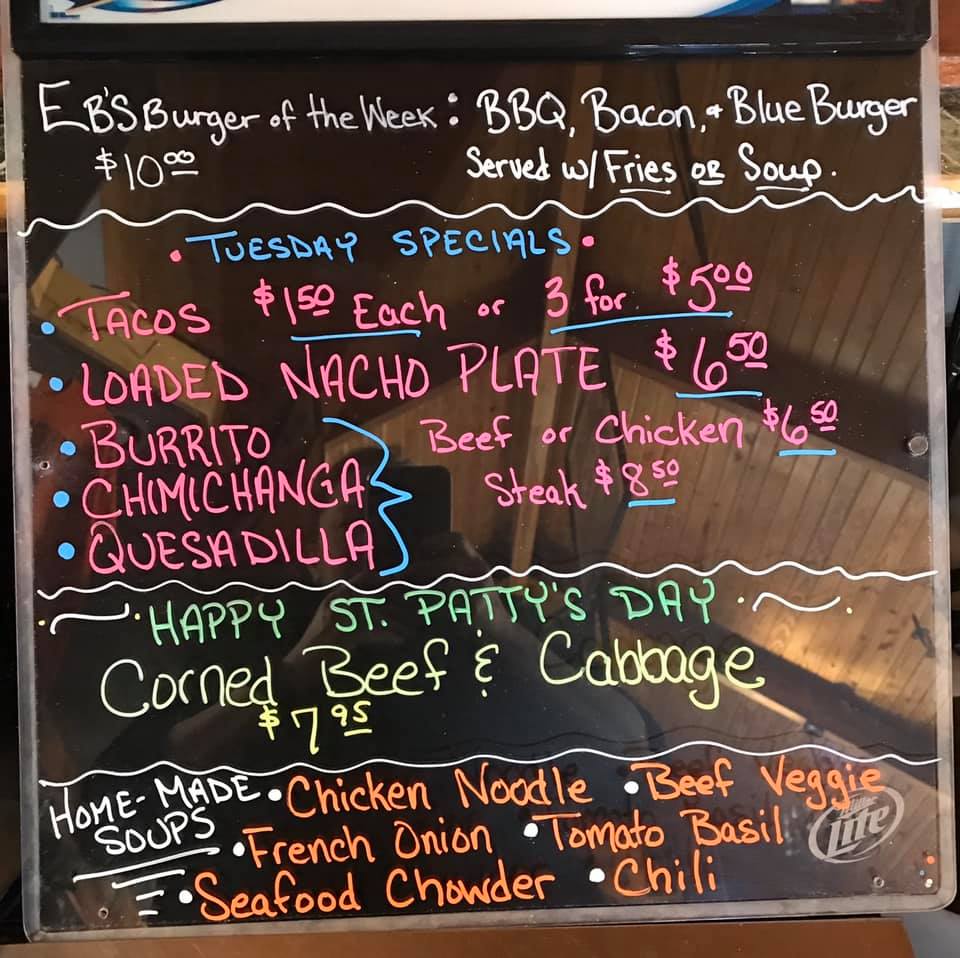 EB'S Burger of the Week: BBQ, Bacon, + Blue Burger
$10.00 Served w/ Fries OR Soup.
• TUESDAY SPECIALS •
• TACOS $1.50 Each or 3 for $5.00
• LOADED NACHO PLATE $6.50
• BURRITO Beef or Chicken $6.50
• CHIMICHANGA Steak $8.50
• QUESADILLA
HAPPY ST. PATTY'S DAY
Corned Beef & Cabbage
$7.95
HOME-MADE SOUPS • Chicken Noodle • Beef Veggie
• French Onion • Tomato Basil
• Seafood Chowder • Chili
Miller Lite